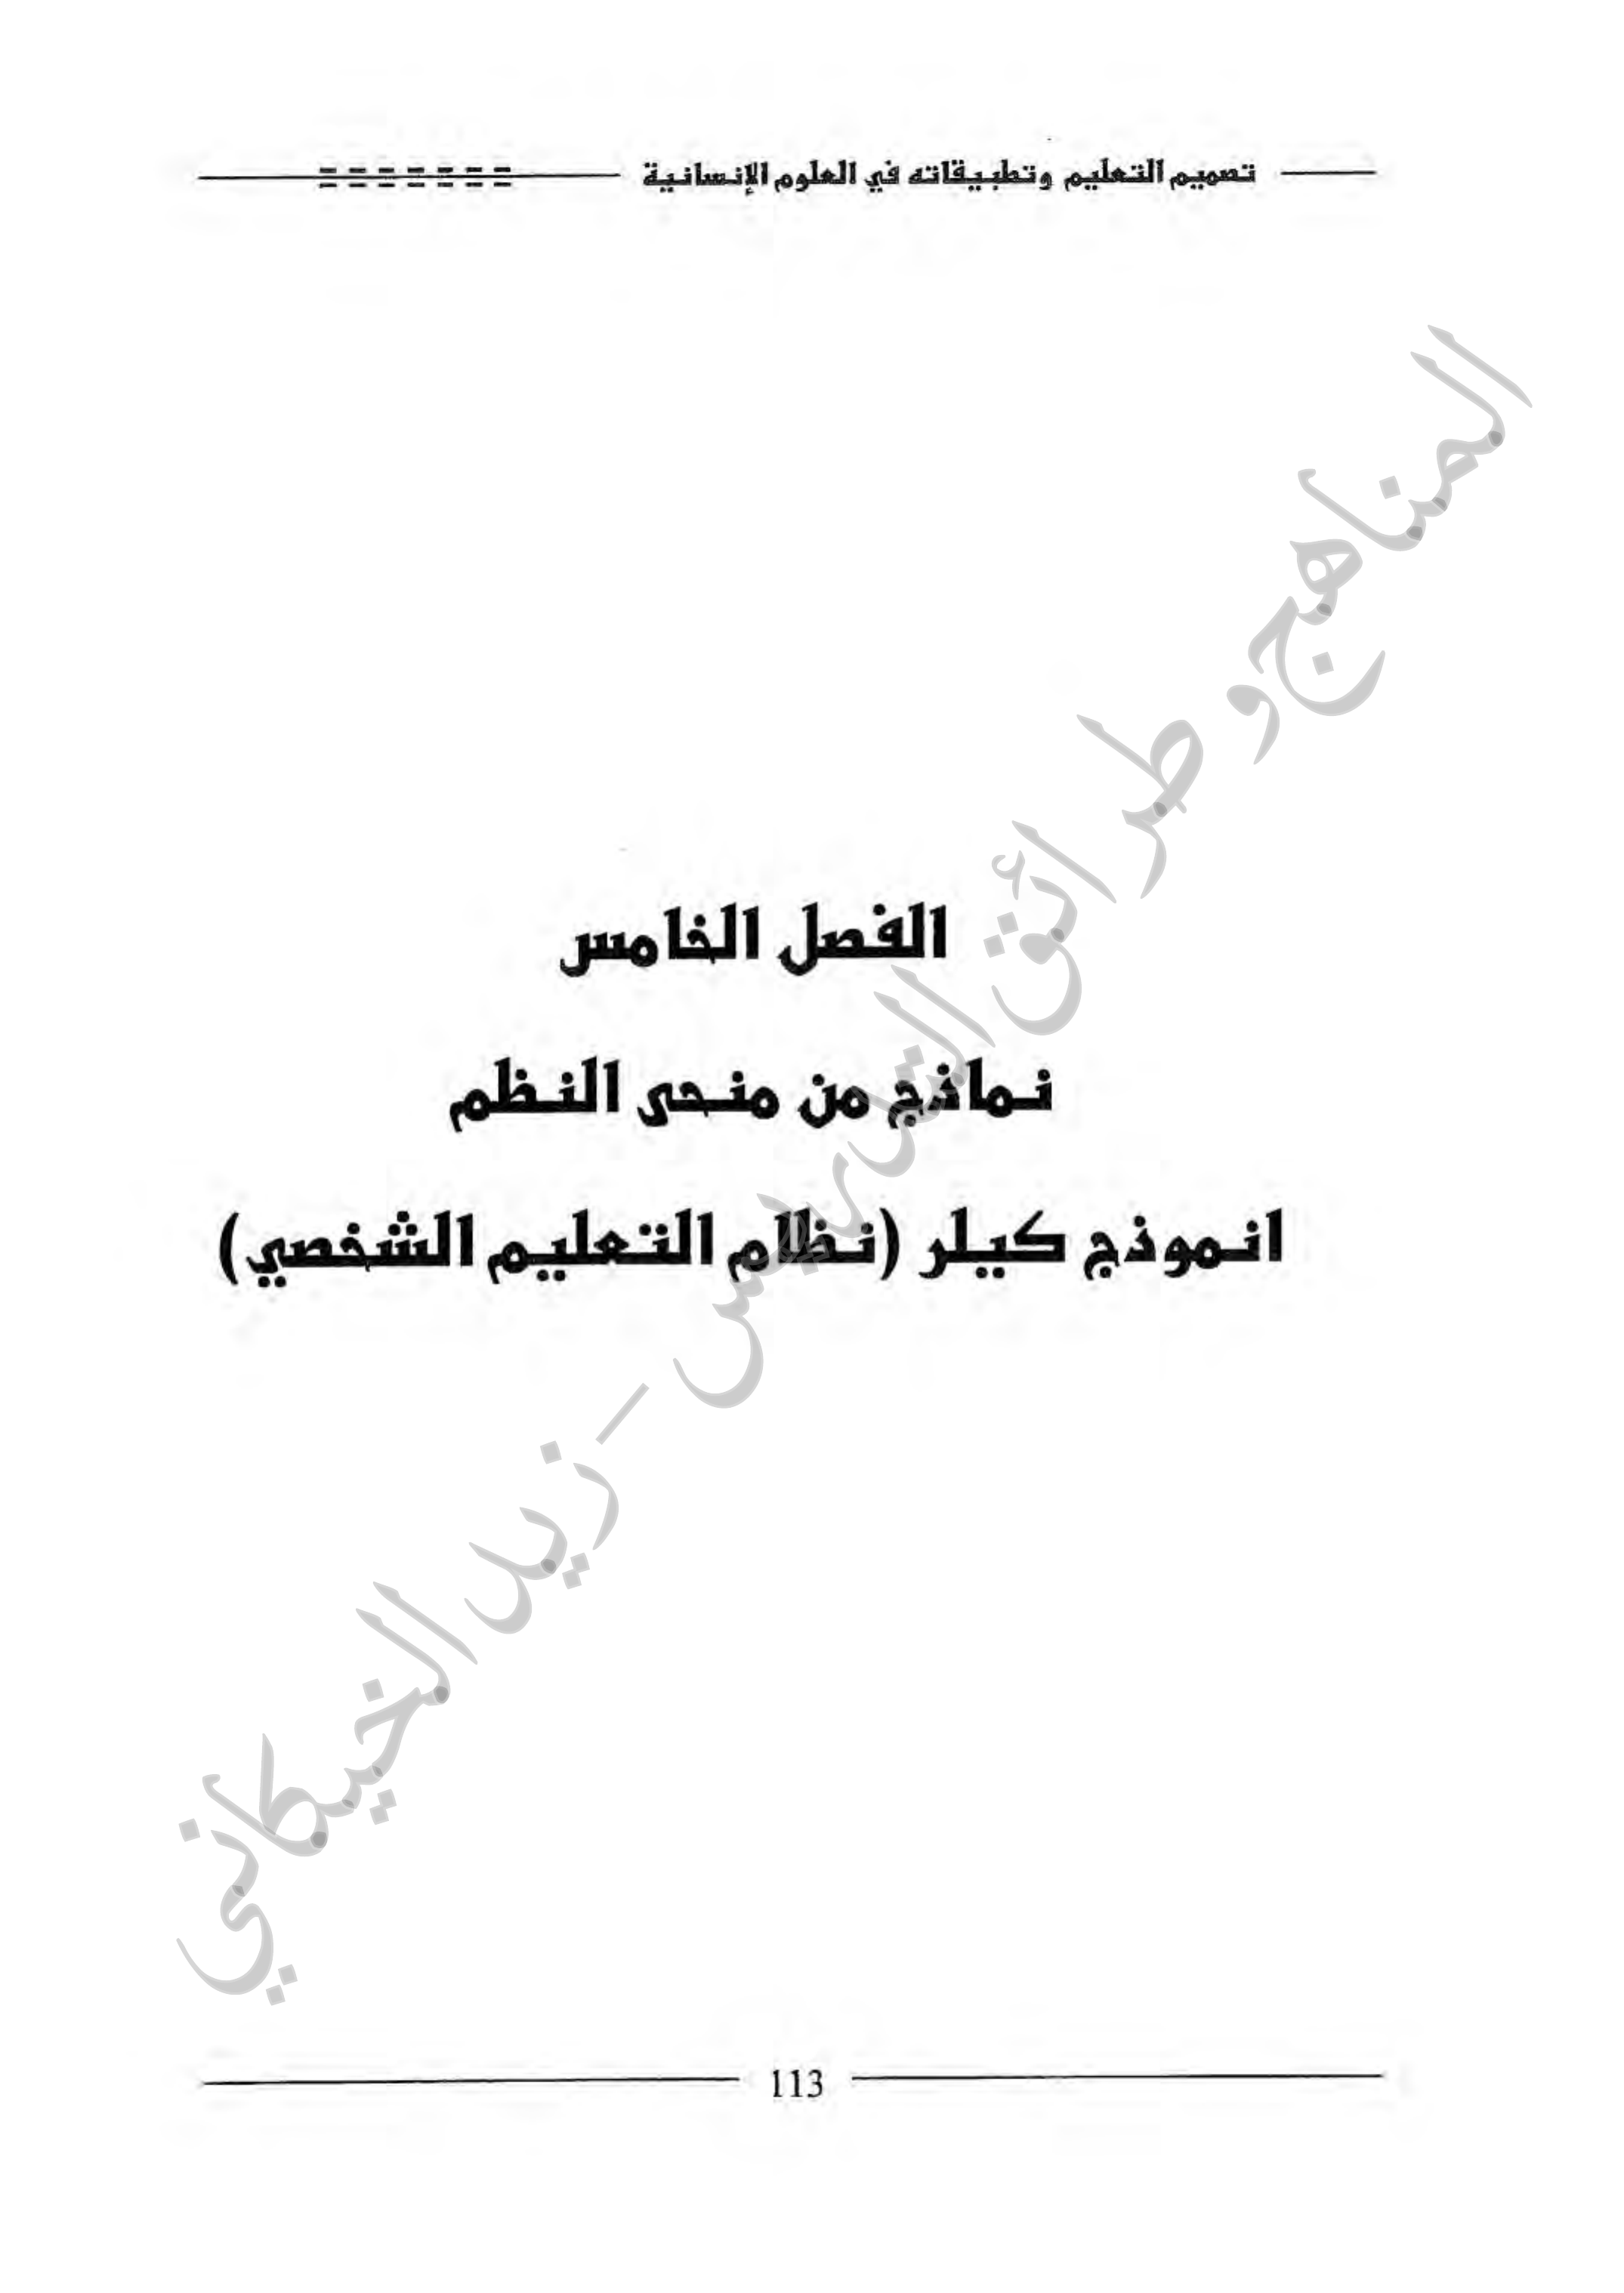 تصميم التعليم وتطبيقاته في العلوم الإنسانية
الفصل الخامس
نماذج من منحى النظم
انموذج كيلر (نظام التعليم الشخصي)
المناهج و طرائق التدريس - زيد الخيكاني
113